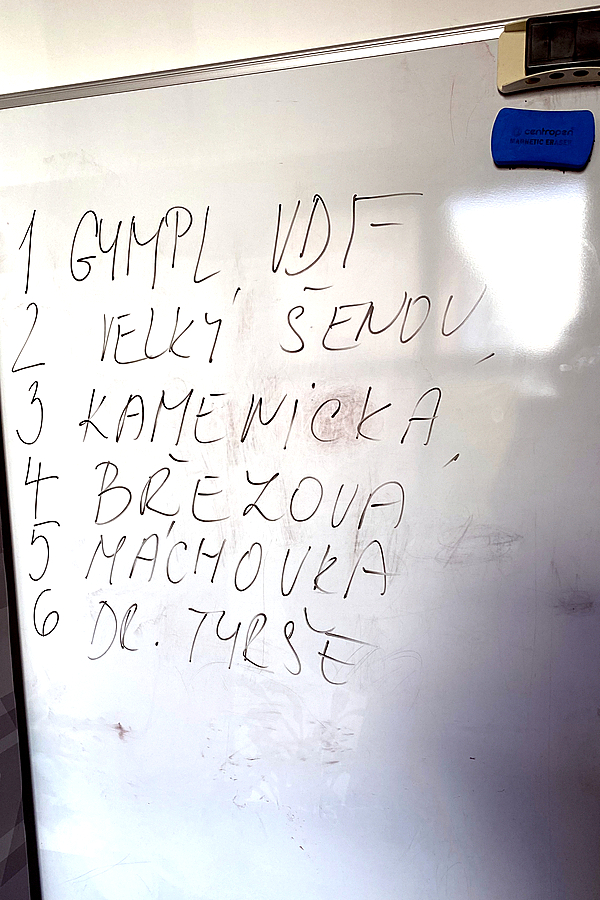 centropen
MAGNETIC ERASER
1 GYMPL VDF
2 VELKÝ ŠENOV
3 KAMENICKÁ
4 BŘEZOVÁ
5 MÁCHOVKA
6 DR. TYRŠE